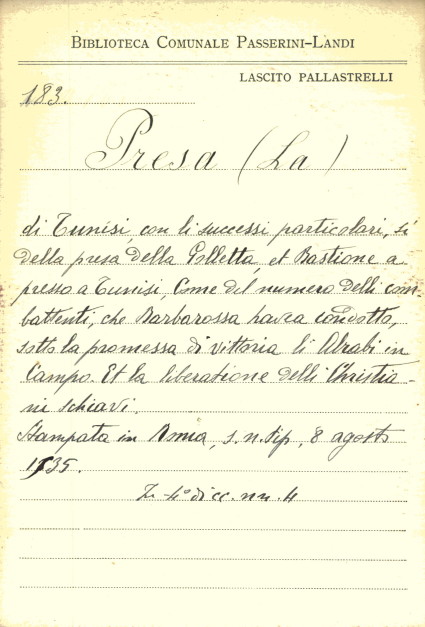 BIBLIOTECA COMUNALE PASSERINI-LANDI
LASCITO PALLASTRELLI
183.
Presa (La)
di Tunisi, con li successi particolari, sì
della presa della Golletta, et Bastione a-
presso a Tunisi, Come del numero delli com-
battenti, che Barbarossa havea condotto,
sotto la promessa di vittoria li Alrabi in
Campo. Et la liberatione delli Christia-
ni schiavi.
Stampata in Roma, s. n. tip, 8 agosto
1535.
in-4° di cc. nn. 4